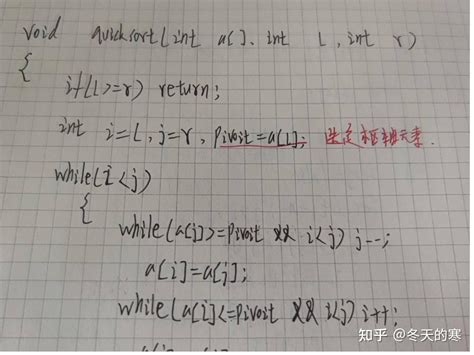 void quicksort(int a[], int l, int r)
{
if(l>=r) return;
int i=l, j=r, pivoit=a[l]; 选定枢轴元素.
while(i<j)
{
while(a[j]>=pivoit && i<j) j--;
a[i]=a[j];
while(a[i]<=pivoit && i<j) i++;
知乎 @冬天的寒